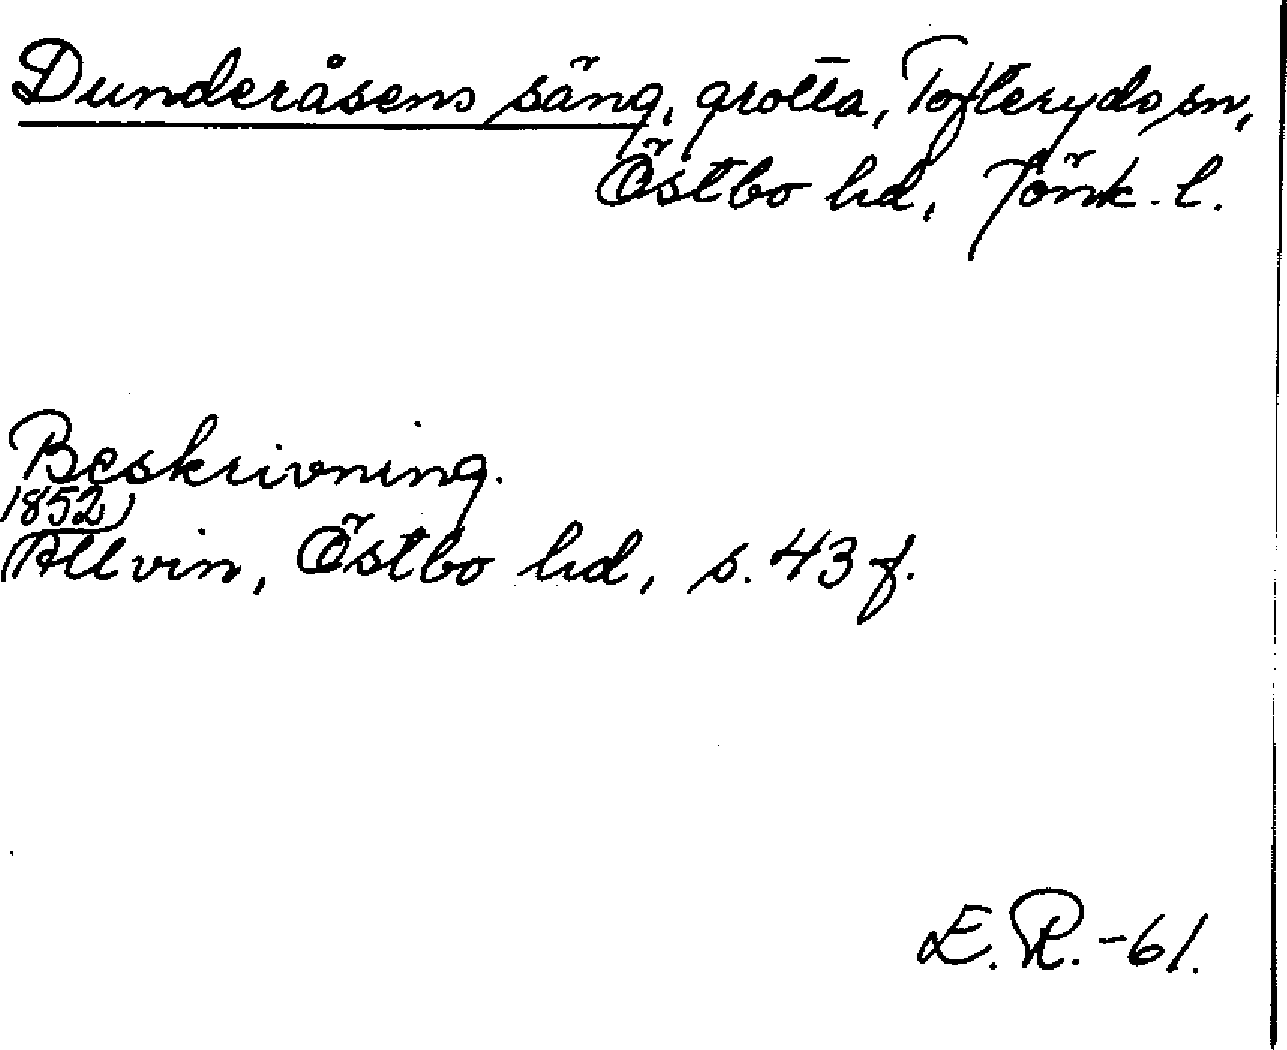 Dunderåsens säng, grotta, Tofteryds sn,
Östbo hd, Jönk. l.
Beskrivning.
1852)
Allvin, Östbo hd, s. 43 f.
E. R. -61.